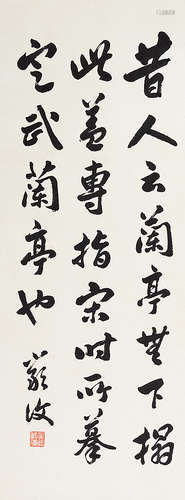 昔人云蘭亭無下搨
此蓋專指宋時所摹
定武蘭亭也
嚴修